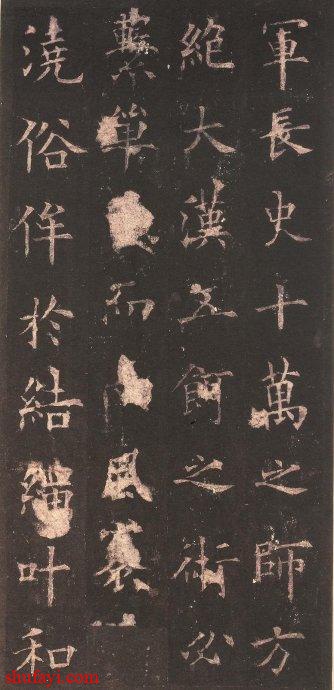 軍長史十萬之師方
絶大漢五餌之術必
單而風
澆俗侔於結繩叶和
shufayi.com